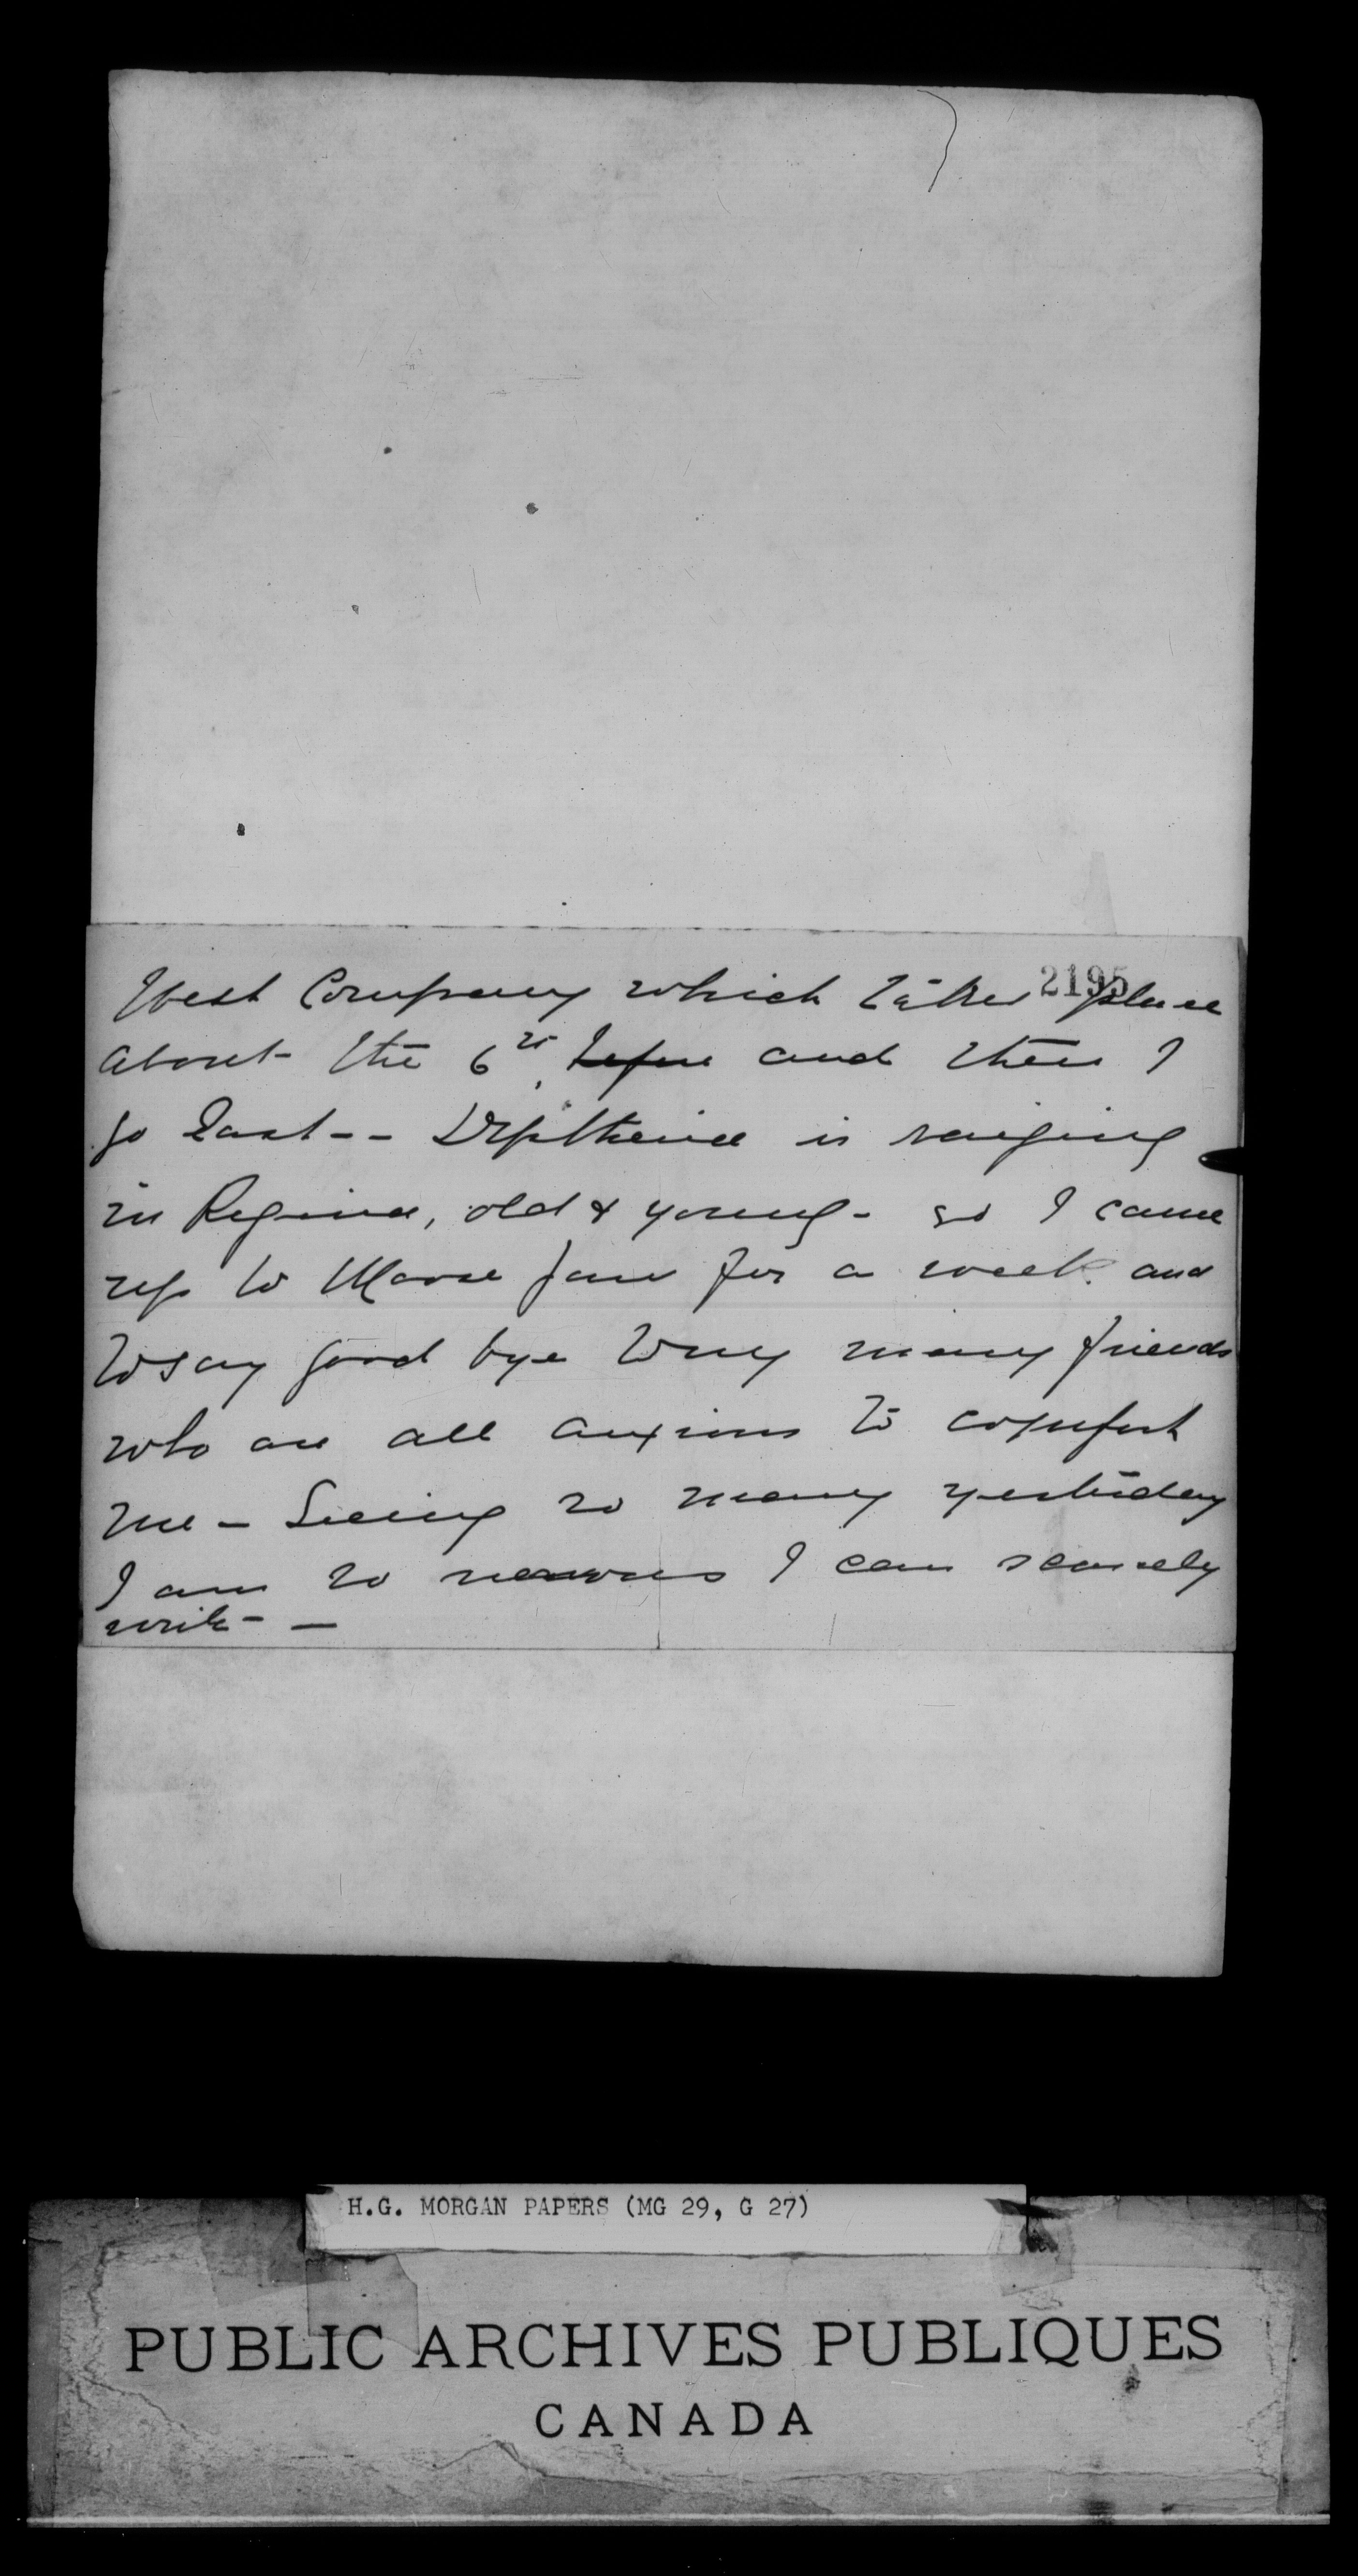 2195
West Company which takes place
about the 6th before and then I
go East - - Diptheria is raiging
in Regina, old & young - so I came
up to Moose Jaw for a week and
to say good bye to my many friends
who are all anxious to comfort
me - Seeing so many yesterday
I am so nervous I can scarcely
write - -
H.G. MORGAN PAPERS (MG 29, G 27)
PUBLIC ARCHIVES PUBLIQUES
CANADA